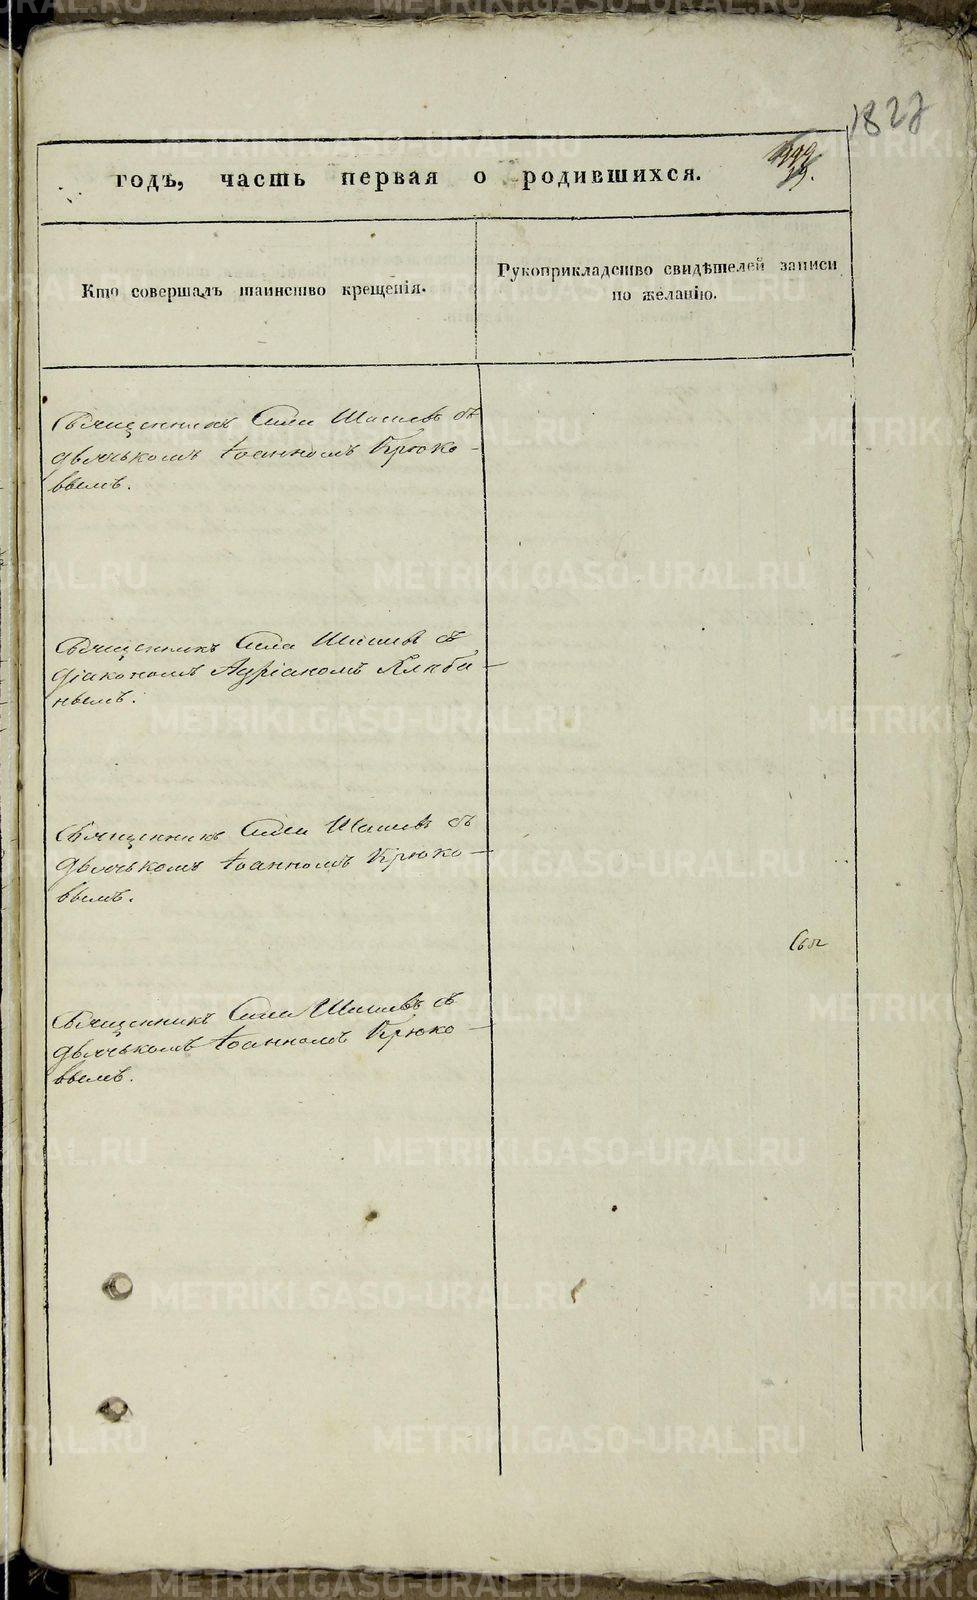 1827
годъ, часть первая о родившихся.
Кто совершалъ таинство крещенія.
Рукоприкладство свидѣтелей записи
по желанію.
Священникъ Сила Шишевъ съ
дьячькомъ Іоанномъ Крюко-
вымъ.
Священникъ Сила Шишевъ съ
діакономъ Адріаномъ
нымъ.
Священникъ Сила Шишевъ съ
дьячькомъ Іоанномъ Крюко-
вымъ.
Священникъ Сила Шишевъ съ
дьячькомъ Іоанномъ Крюко-
вымъ.
METRIKI.GASO-URAL.RU